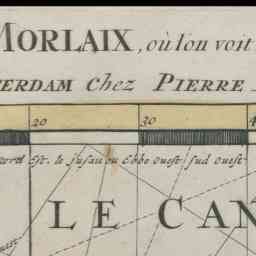 MORLAIX, où l'on voit
ERDAM chez PIERRE
20 30 4
Est. le jusan ou Ebbe ouest sud ouest
LE CAN